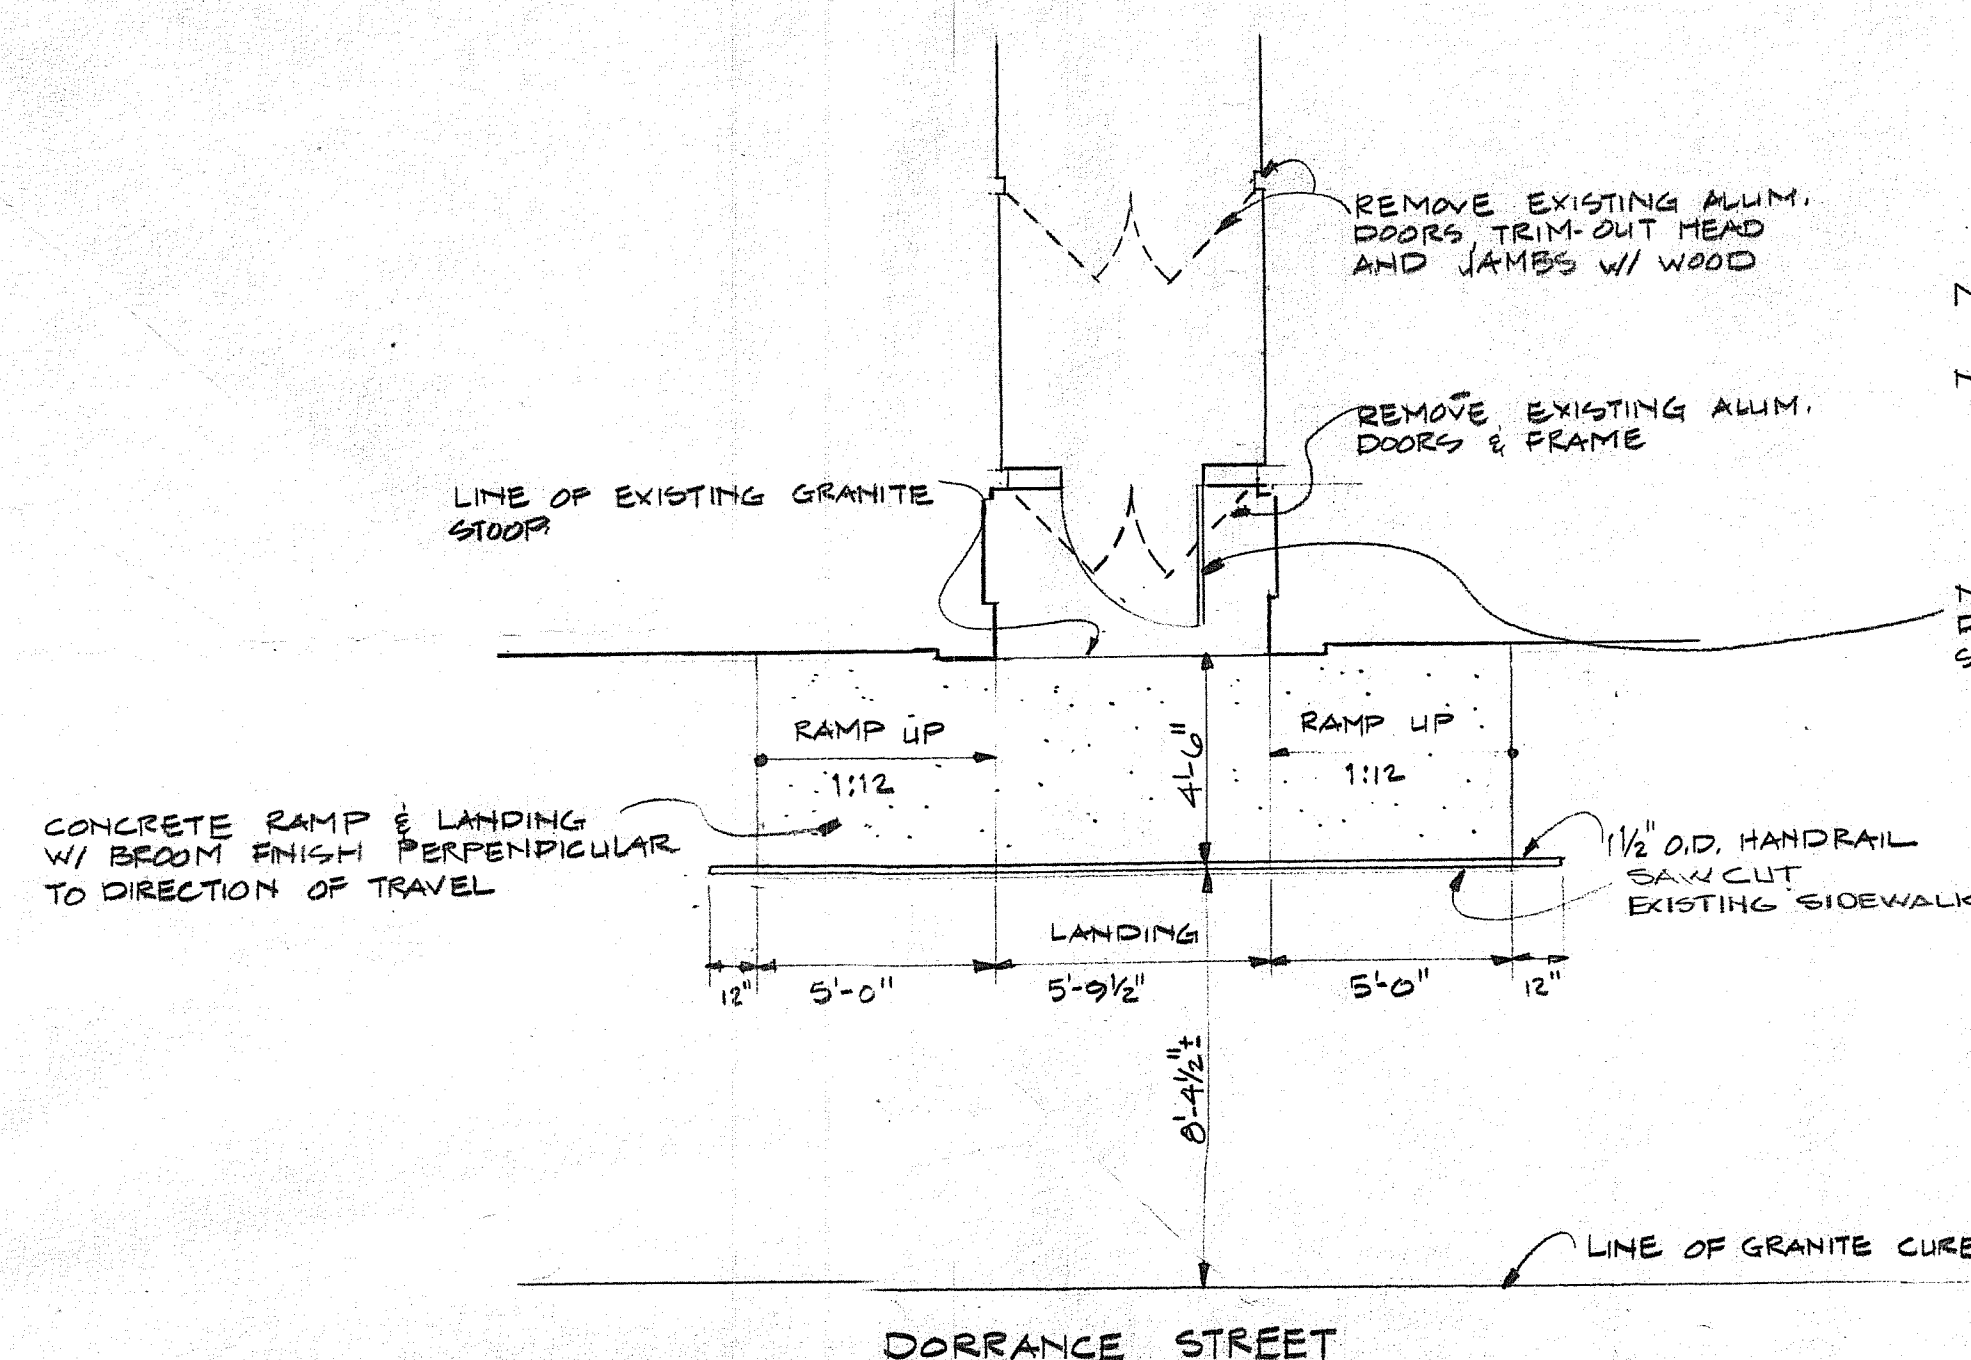 REMOVE EXISTING ALUM.
DOORS, TRIM-OUT HEAD
AND JAMBS W/ WOOD
REMOVE EXISTING ALUM.
DOORS & FRAME
LINE OF EXISTING GRANITE
STOOP
RAMP UP
1:12
4'-6"
RAMP UP
1:12
CONCRETE RAMP & LANDING
W/ BROOM FINISH PERPENDICULAR
TO DIRECTION OF TRAVEL
1 1/2" O.D. HANDRAIL
SAWCUT
EXISTING SIDEWALK
LANDING
12"
5'-0"
5'-9 1/2"
5'-0"
12"
8'-4 1/2" ±
LINE OF GRANITE
DORRANCE STREET